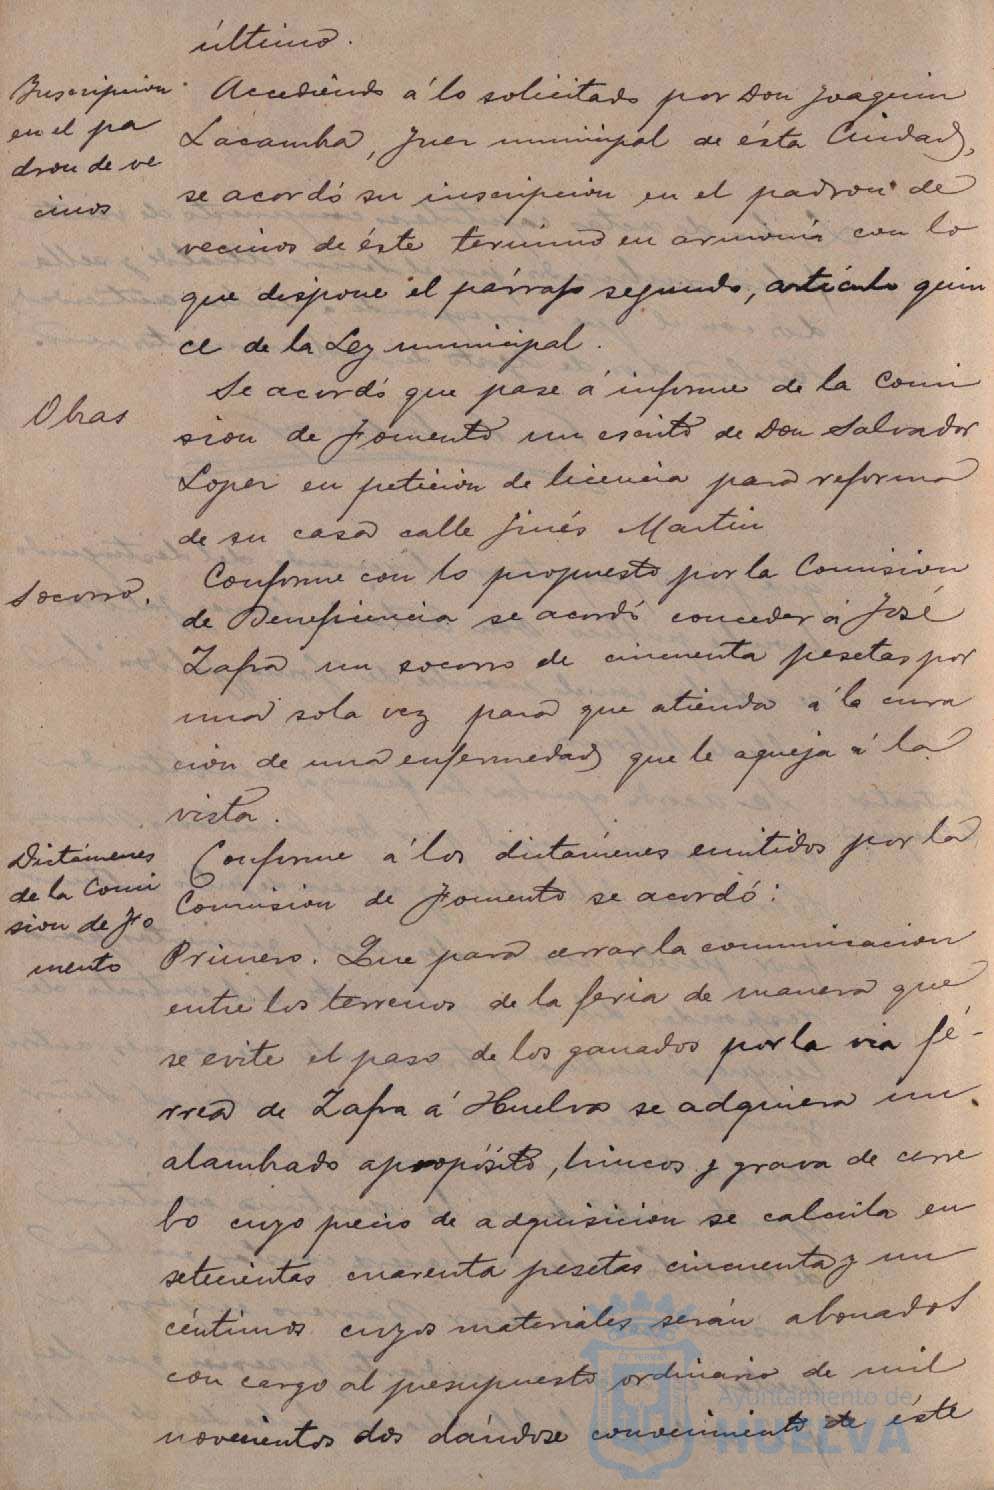 último.
Inscripcion
en el pa
dron de ve
cinos
Accediendo á lo solicitado por Don Joaquin
Lacambra, Juez municipal de ésta Ciudad,
se acordó su inscripcion en el padron de
vecinos de éste termino en armonia con lo
que dispone el párrafo segundo, articulo quin
ce de la Ley municipal.
Obras
Se acordó que pase á informe de la Comi
sion de Fomento un escrito de Don Salvador
Lopez en peticion de licencia para reforma
de su casa calle Jinés Martin
Socorro.
Conforme con lo propuesto por la Comision
de Beneficencia se acordó conceder á José
Zafra un socorro de cincuenta pesetas por
una sola vez para que atienda á la cura
cion de una enfermedad que le aqueja á la
vista.
Dictámenes
de la Comi
sion de Fo
mento
Conforme á los dictámenes emitidos por la
Comision de Fomento se acordó:
Primero. Que para cerrar la comunicacion
entre los terrenos de la feria de manera que
se evite el paso de los ganados por la via fé-
rrea de Zafra á Huelva se adquiera un
alambrado apropósito, hincos y grava de cerre
bo cuyo precio de adquisicion se calcula en
setecientas cuarenta pesetas cincuenta y un
céntimos cuyos materiales serán abonados
con cargo al presupuesto ordinario de mil
novecientos dos dándose conocimiento de éste
Ayuntamiento de
HUELVA